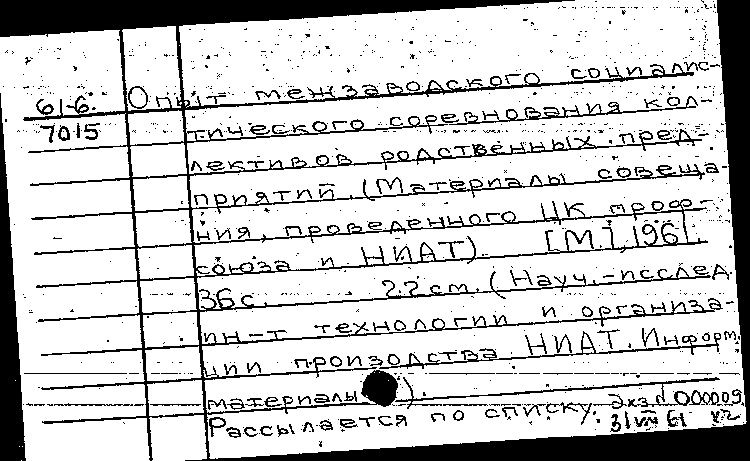 61-6. Опыт межзаводского социалис-
7015 тического соревнования кол-
лективов родственных пред-
приятий. (Материалы совеща-
ния, проведенного ЦК проф-
союза и НИАТ). [М.], 1961.
36 с. 22 см. (Науч.-исслед.
ин-т технологии и организа-
ции производства НИАТ. Информ.
материалы).
Рассылается по списку. Экз. № 000009.
31 VIII 61